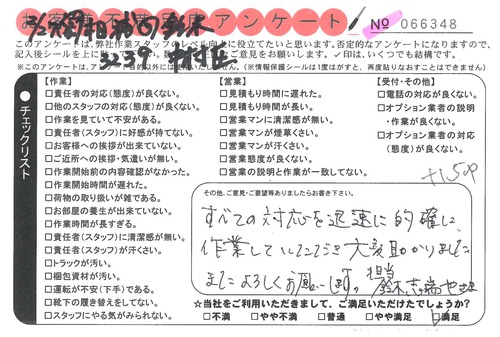 お客様満足度アンケート
No 066348
このアンケートは、弊社作業スタッフのレベル向上に役立てたいと思います。否定的なアンケートになりますので、
記入後シールを上に
ご意見をお願いします。✓印は、いくつでも結構です。
※このアンケートは、アンケート目的以外には
(※情報保護シールは1度はがすと、再度貼りなおすことはできません)
チェックリスト
【作業】
□責任者の対応(態度)が良くない。
□他のスタッフの対応(態度)が良くない。
□作業を見ていて不安がある。
□責任者(スタッフ)に好感が持てない。
□お客様への挨拶が出来ていない。
□ご近所への挨拶・気遣いが無い。
□作業開始前の内容確認がなかった。
□作業開始時間が遅れた。
□荷物の取り扱いが雑である。
□お部屋の養生が出来ていない。
□作業時間が長すぎる。
□責任者(スタッフ)に清潔感が無い。
□責任者(スタッフ)が汗くさい。
□トラックが汚い。
□梱包資材が汚い。
□運転が不安(下手)である。
□靴下の履き替えをしてない。
□スタッフにやる気がみられない。
【営業】
□見積もり時間に遅れた。
□見積もり時間が長い。
□営業マンに清潔感が無い。
□営業マンが煙草くさい。
□営業マンが汗くさい。
□営業態度が良くない。
□営業の説明と作業が一致してない。
【受付・その他】
□電話の対応が良くない。
□オプション業者の説明
・作業が良くない。
□オプション業者の対応
(態度)が良くない。
その他、ご意見・ご要望等ありましたらお書き下さい。
すべての対応を迅速に的確に、
作業していただき大変助かりました
またよろしくお願いします。担当
鈴木
☆当社をご利用いただきまして、ご満足いただけたでしょうか?
□不満 □やや不満 □普通 □やや満足 □満足